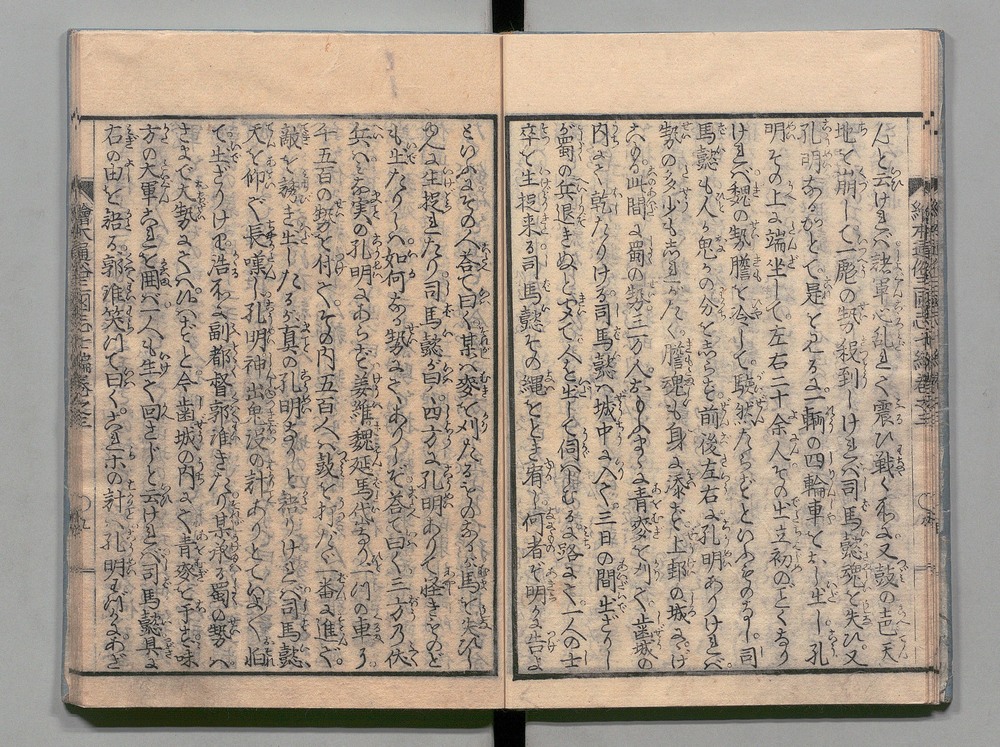 んと云けれバ諸軍心乱れて震ひ戦くれバ又鼓の声天
地を崩して一彪の勢殺到しけれバ司馬懿魂を失ひ又
孔明なるむとて是を見るに一輌の四輪車をおし出し孔
明その上に端坐して左右二十余人その出立初のごとくなり
けれバ魏の勢膽を冷して駭然たらずといふものなし司
馬懿も人か鬼かの分をしらず前後左右に孔明ありけれバ
勢の多少もしれがたく膽魂も身に添ず上邽の城ににげ
入る此間に蜀の勢三万人おもふまゝに青麥を刈て歯城の
内にて乾たりける司馬懿ハ城中に入て三日の間出ざりし
が蜀の兵退きぬときゝて人を出して伺ハしむるに路にて一人の士
卒を生捉来る司馬懿その縄をとき宥し何者ぞ明かに告よ
といふにその人答て曰く某ハ麥を刈たるものなるが馬を失ひし
ゆへに生捉れたり司馬懿が曰四方に孔明ありて怪きものど
も出たりしハ如何なる勢にてありしぞ答て曰く三方の伏
兵ハミな実の孔明にあらず姜維魏延馬岱なり一川の車り
千五百の勢を付てその内五百人ハ鼓を打たゞ一番に進て
敵を誘き出したるが真の孔明なりと語りけれバ司馬懿
天を仰ぎ長嘆し孔明神出鬼没の計ありとていよく怕
て出ざりける浩所に副都督郭淮きたり某承る蜀の勢ハ
さまで大勢にてハ候ハずと今歯城の内にて青麥を予す味
方の大軍これを囲バ一人も生て回さじと云けれバ司馬懿具に
右の由を語る郭淮笑て曰くこれホの計ハ孔明も